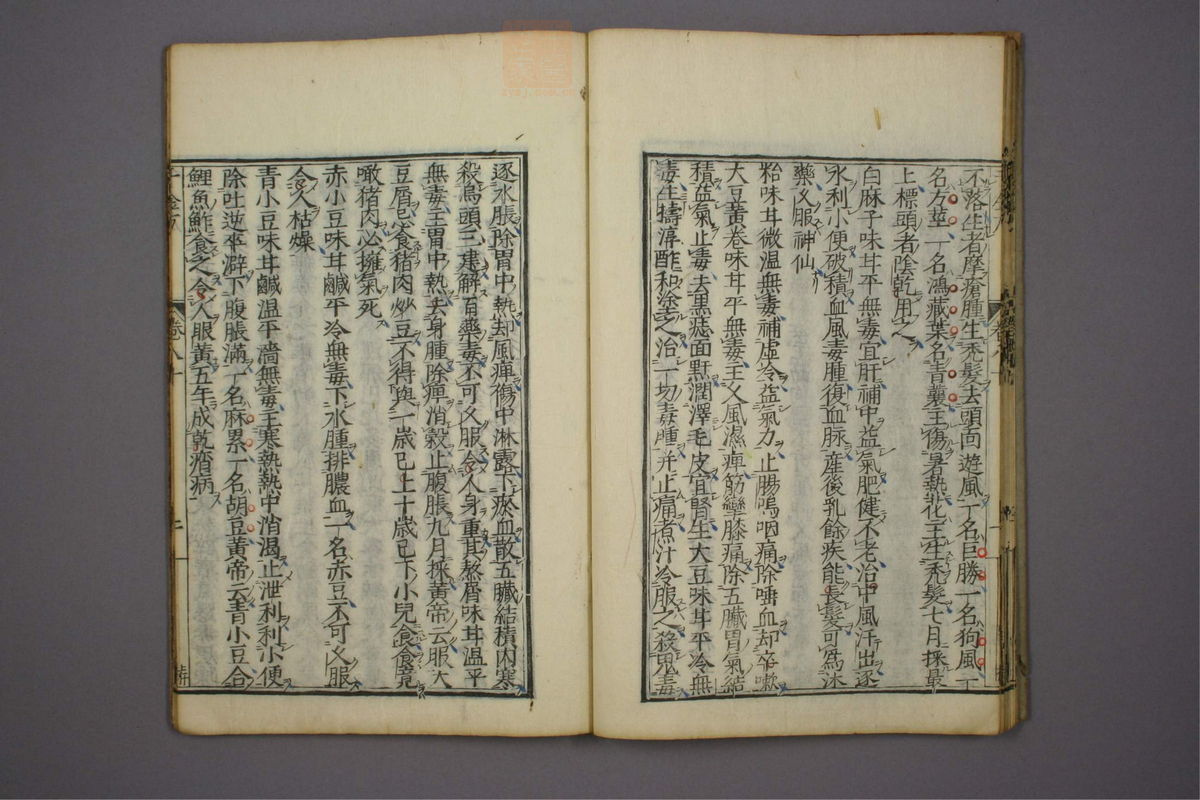 不落生者摩瘡腫生禿髮去頭面遊風一名巨勝一名狗風一
名方莖一名鴻藏葉名青蘘主傷暑熱花主生禿髮七月採最
上標頭者陰乾用之
白麻子味甘平無毒宜肝補中益氣肥健不老治中風汗出逐
水利小便破積血風毒腫復血脉產後乳餘疾能長髮可爲沐
藥久服神仙
粭味甘微温無毒補虛冷益氣力止腸鳴咽痛除唾血却卒嗽
大豆黄卷味甘平無毒主久風濕痺筋攣膝痛除五臟胃氣結
積益氣止毒去黑痣面䵟潤澤毛皮宜腎生大豆味甘平冷無
毒生擣淳酢和塗之治一切毒腫并止痛煮汁冷服之殺鬼毒
逐水脹除胃中熱却風痺傷中淋露下瘀血散五臟結積内寒
殺烏頭三建解百藥毒不可久服令人身重其熬屑味甘温平
無毒主胃中熱去身腫除痺消穀止腹脹九月採黄帝云服大
豆屑忌食猪肉炒豆不得與一歲已上十歲已下小兒食食竟
噉猪肉必擁氣死
赤小豆味甘鹹平冷無毒下水腫排膿血一名赤豆不可久服
令人枯燥
青小豆味甘鹹温平濇無毒主寒熱熱中消渴止泄利利小便
除吐逆卒澼下腹脹滿一名麻累一名胡豆黄帝云青小豆合
鯉魚鮓食之令人服黄五年成乾痟病
卷八